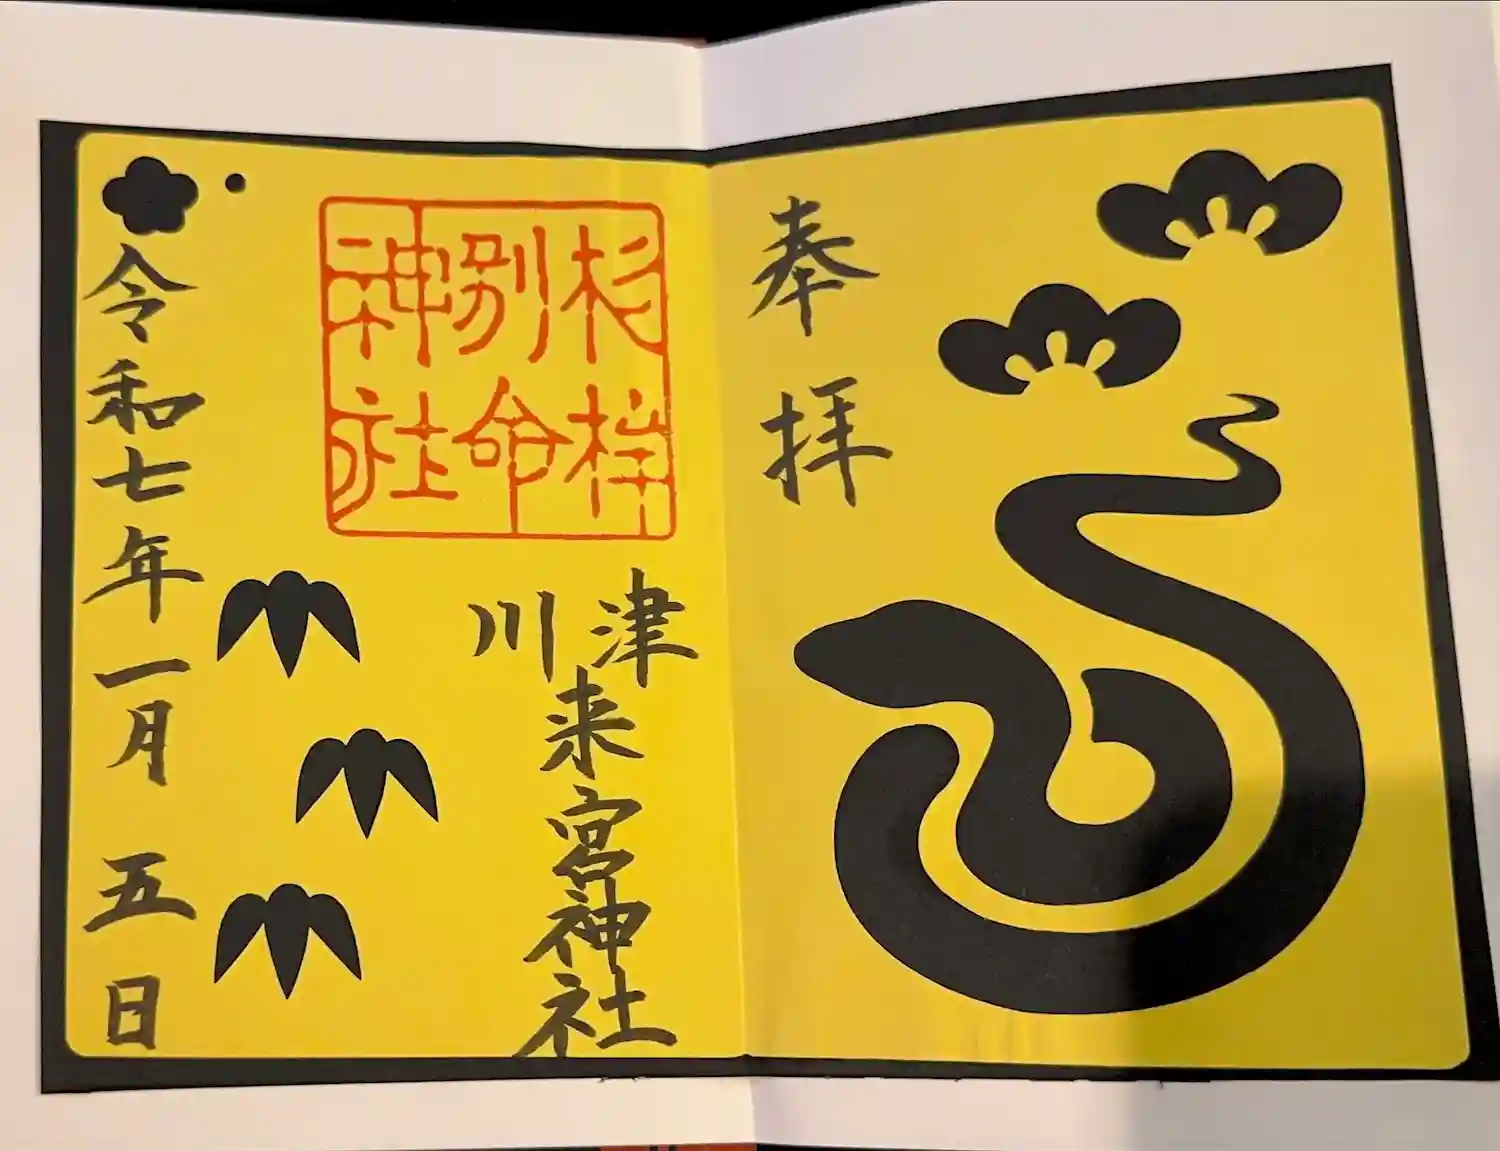 奉拝
杉桙
別命
神社
川津
来宮神社
令和七年一月五日